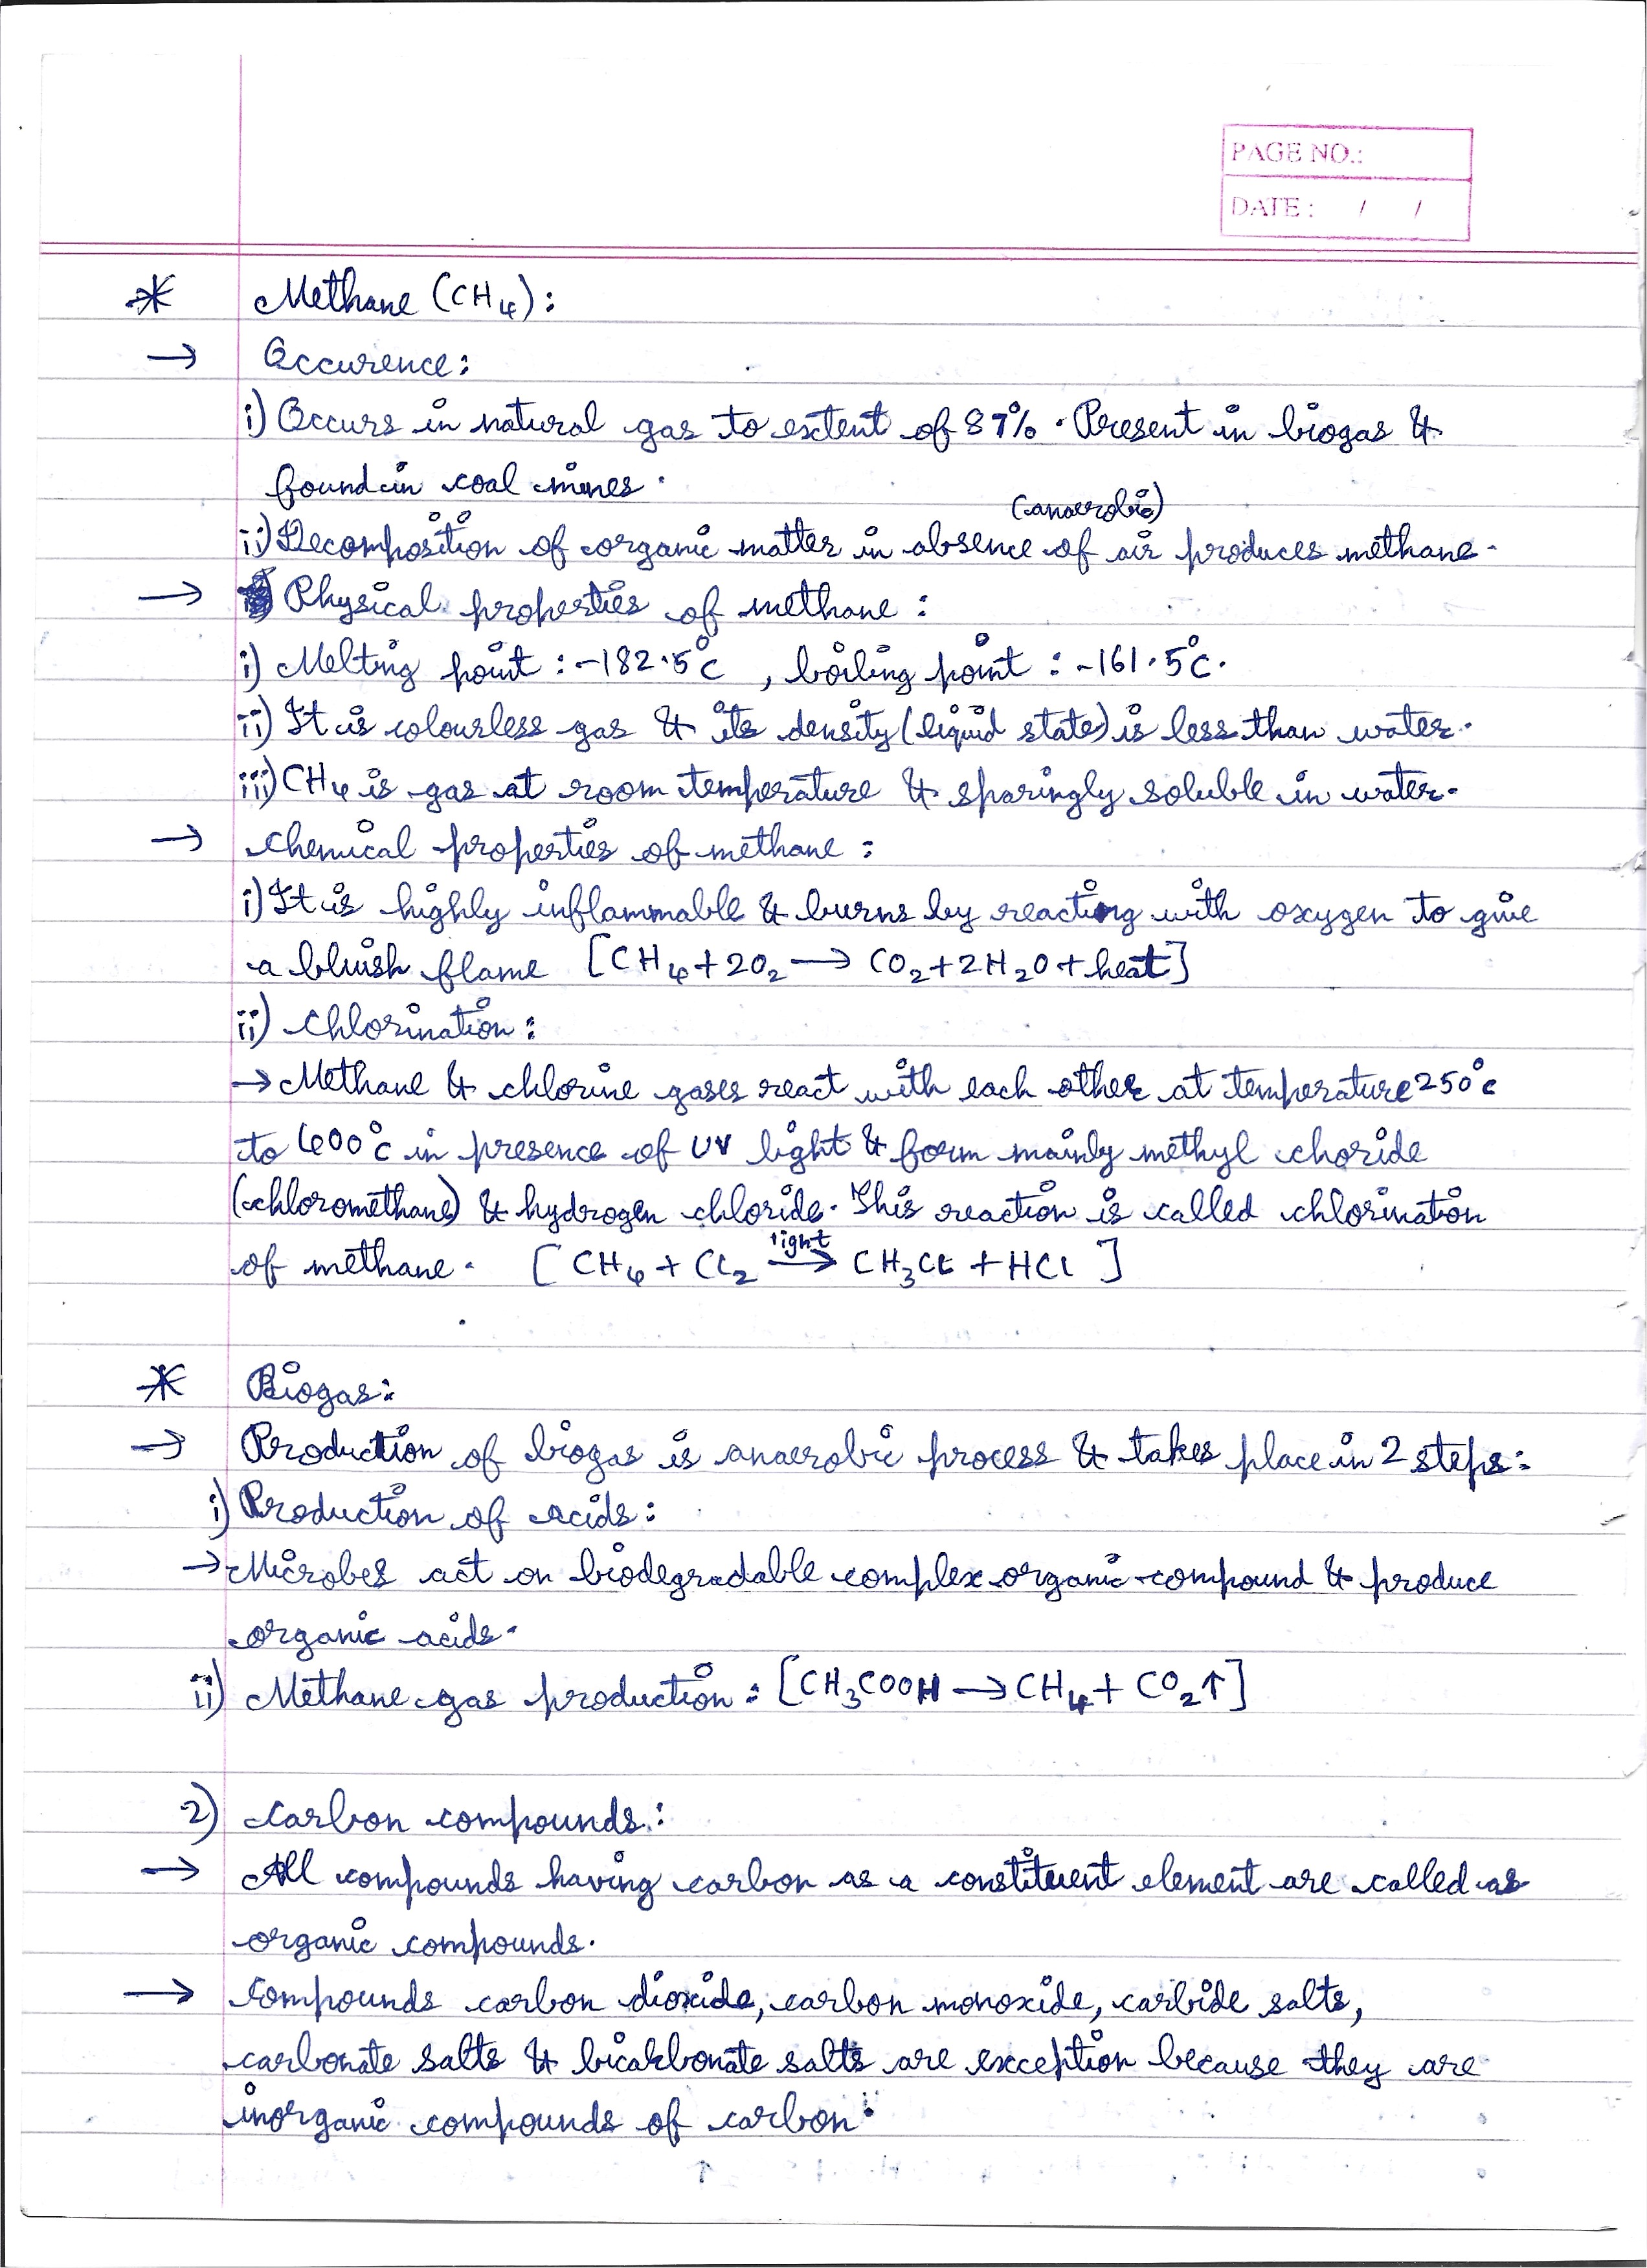 PAGE NO.:
DATE : / /
* Methane (CH4):
→ Occurence:
i) Occurs in natural gas to extent of 87%. Present in biogas &
found in coal mines.
(anaerobic)
ii) Decomposition of organic matter in absence of air produces methane.
→ Physical properties of methane :
i) Melting point : -182.5°C , boiling point : -161.5°C.
ii) It is colourless gas & its density (liquid state) is less than water.
iii) CH4 is gas at room temperature & sparingly soluble in water.
→ Chemical properties of methane :
i) It is highly inflammable & burns by reacting with oxygen to give
a bluish flame [CH4 + 2O2 → CO2 + 2H2O + heat]
ii) Chlorination :
→ Methane & chlorine gases react with each other at temperature 250°C
to 400°C in presence of UV light & form mainly methyl choride
(chloromethane) & hydrogen chloride. This reaction is called chlorination
of methane. [CH4 + Cl2 light→ CH3Cl + HCl]
* Biogas:
→ Production of biogas is anaerobic process & takes place in 2 steps:
i) Production of acids:
→ Microbes act on biodegradable complex organic compound & produce
organic acids.
ii) Methane gas production : [CH3COOH → CH4 + CO2↑]
2) Carbon compounds:
→ All compounds having carbon as a constituent element are called as
organic compounds.
→ Compounds carbon dioxide, carbon monoxide, carbide salts,
carbonate salts & bicarbonate salts are exception because they are
inorganic compounds of carbon.